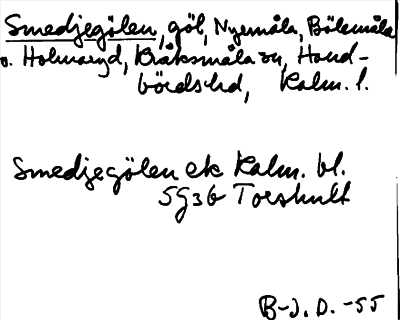 Smedjegölen, göl, Nyemåla, Bölemåla
o. Holmaryd, Kråksmåla sn, Hand-
bördshd, Kalm. l.
Smedjegölen ek Kalm. bl.
5G3b Toeshult
B-J. D. -55